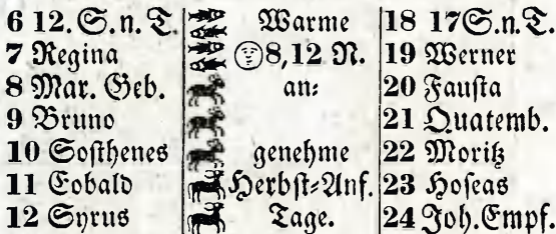 6 12. S. n. T. Warme 18 17 S. n. T.
7 Regina 8,12 N. 19 Werner
8 Mar. Geb. an= 20 Fausta
9 Bruno 21 Quatemb.
10 Sosthenes genehme 22 Moritz
11 Cobald Herbst=Anf. 23 Hoseas
12 Syrus Tage. 24 Joh. Empf.